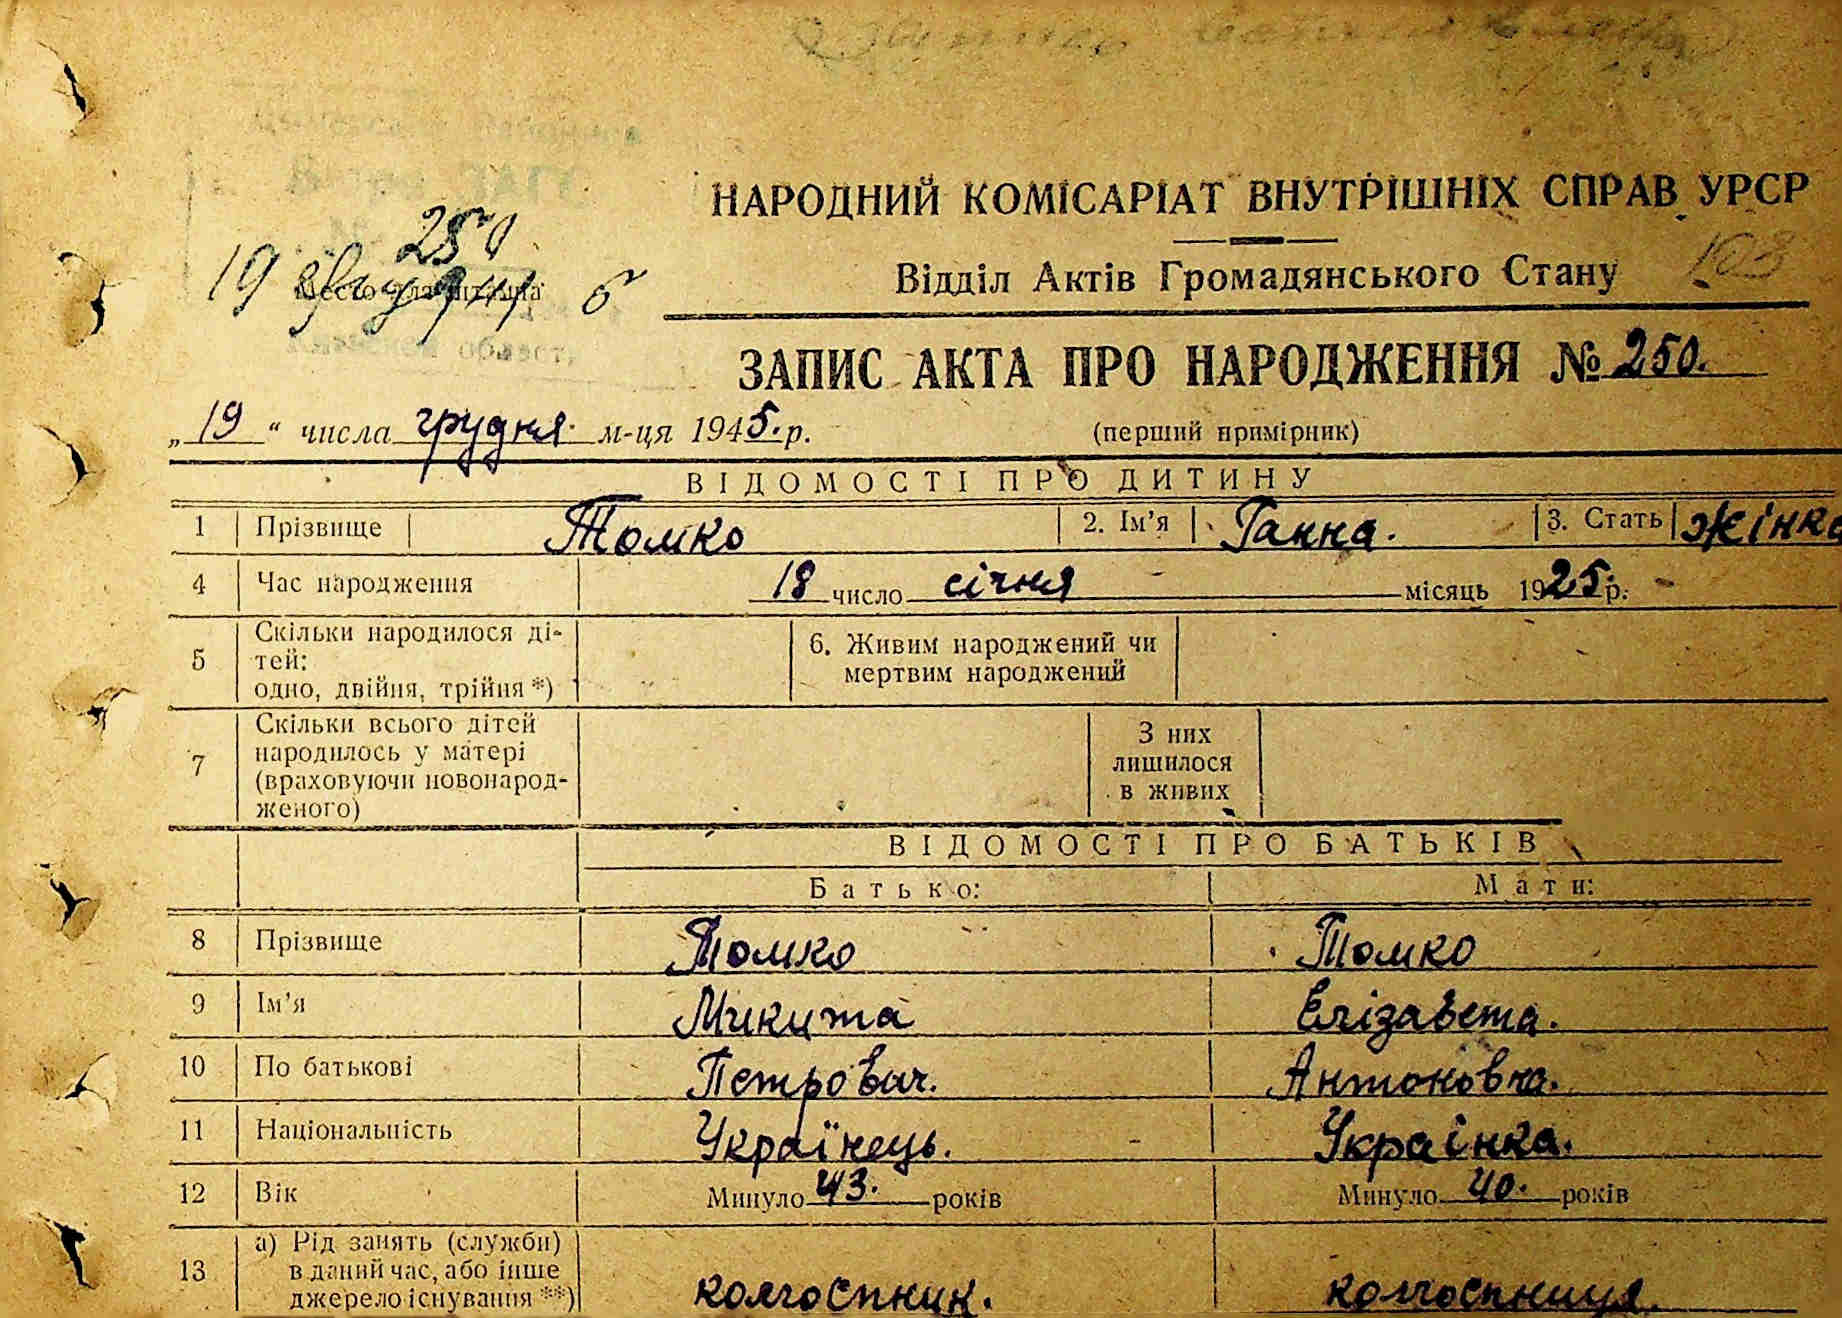 НАРОДНИЙ КОМІСАРІАТ ВНУТРІШНІХ СПРАВ УРСР
250
19 грудня 5
Место для штампа
Відділ Актів Громадянського Стану
103
області
ЗАПИС АКТА ПРО НАРОДЖЕННЯ № 250.
„19“ числа грудня м-ця 1945.р.
(перший примірник)
ВІДОМОСТІ ПРО ДИТИНУ
1 Прізвище Томко 2. Ім’я Ганна. 3. Стать жінка
4 Час народження 18 число січня місяць 1925 р.
5 Скільки народилося ді-
тей:
одно, двійня, трійня *)
6. Живим народжений чи
мертвим народжений
7 Скільки всього дітей
народилось у матері
(враховуючи новонарод-
женого)
З них
лишилося
в живих
ВІДОМОСТІ ПРО БАТЬКІВ
Батько: Мати:
8 Прізвище Томко Томко
9 Ім’я Микита Елізавета.
10 По батькові Петрович. Антоновна.
11 Національність Українець. Украінка.
12 Вік Минуло 43. років Минуло 40. років
13 а) Рід занять (служби)
в даний час, або інше
джерело існування **)
колгоспник. колгоспниця.